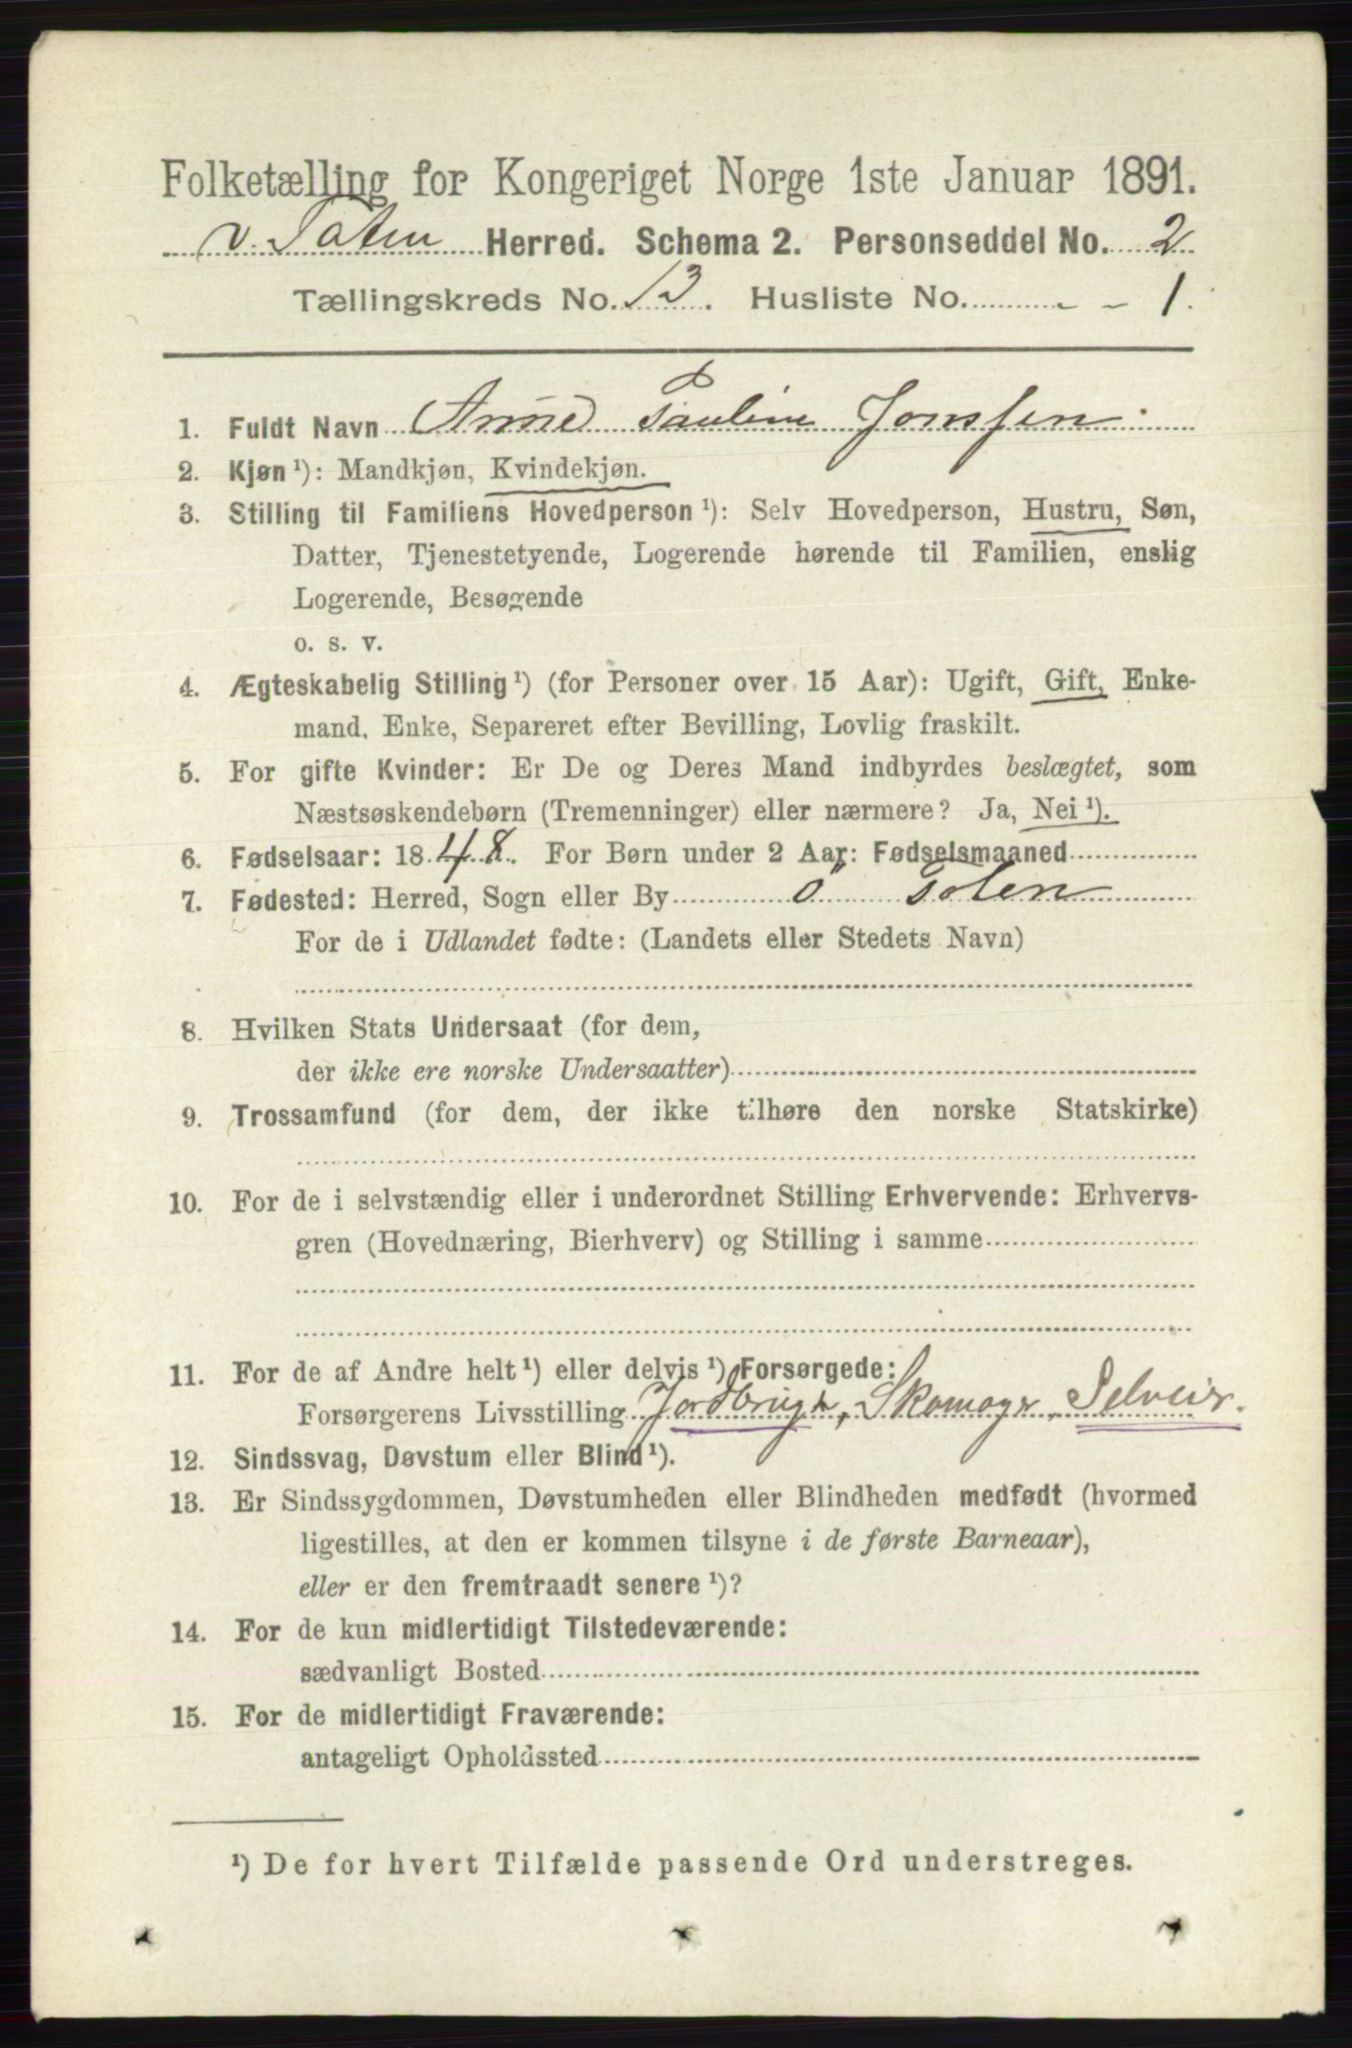 Folketælling for Kongeriget Norge 1ste Januar 1891.
v. Toten Herred. Schema 2. Personseddel No. 2
Tællingskreds No. 13. Husliste No. - - 1.
1. Fuldt Navn Anne Pauline Jonsen
2. Kjøn ¹): Mandkjøn, Kvindekjøn.
3. Stilling til Familiens Hovedperson ¹): Selv Hovedperson, Hustru, Søn,
Datter, Tjenestetyende, Logerende hørende til Familien, enslig
Logerende, Besøgende
o. s. v.
4. Ægteskabelig Stilling ¹) (for Personer over 15 Aar): Ugift, Gift, Enke-
mand, Enke, Separeret efter Bevilling, Lovlig fraskilt.
5. For gifte Kvinder: Er De og Deres Mand indbyrdes beslægtet, som
Næstsøskendebørn (Tremenninger) eller nærmere? Ja, Nei ¹).
6. Fødselsaar: 1848. For Børn under 2 Aar: Fødselsmaaned
7. Fødested: Herred, Sogn eller By ö Toten
For de i Udlandet fødte: (Landets eller Stedets Navn)
8. Hvilken Stats Undersaat (for dem,
der ikke ere norske Undersaatter)
9. Trossamfund (for dem, der ikke tilhøre den norske Statskirke)
10. For de i selvstændig eller i underordnet Stilling Erhvervende: Erhvervs-
gren (Hovednæring, Bierhverv) og Stilling i samme
11. For de af Andre helt ¹) eller delvis ¹) Forsørgede:
Forsørgerens Livsstilling Jordbrug, Skomager, Selveier.
12. Sindssvag, Døvstum eller Blind ¹).
13. Er Sindssygdommen, Døvstumheden eller Blindheden medfødt (hvormed
ligestilles, at den er kommen tilsyne i de første Barneaar),
eller er den fremtraadt senere ¹)?
14. For de kun midlertidigt Tilstedeværende:
sædvanligt Bosted
15. For de midlertidigt Fraværende:
antageligt Opholdssted
¹) De for hvert Tilfælde passende Ord understreges.